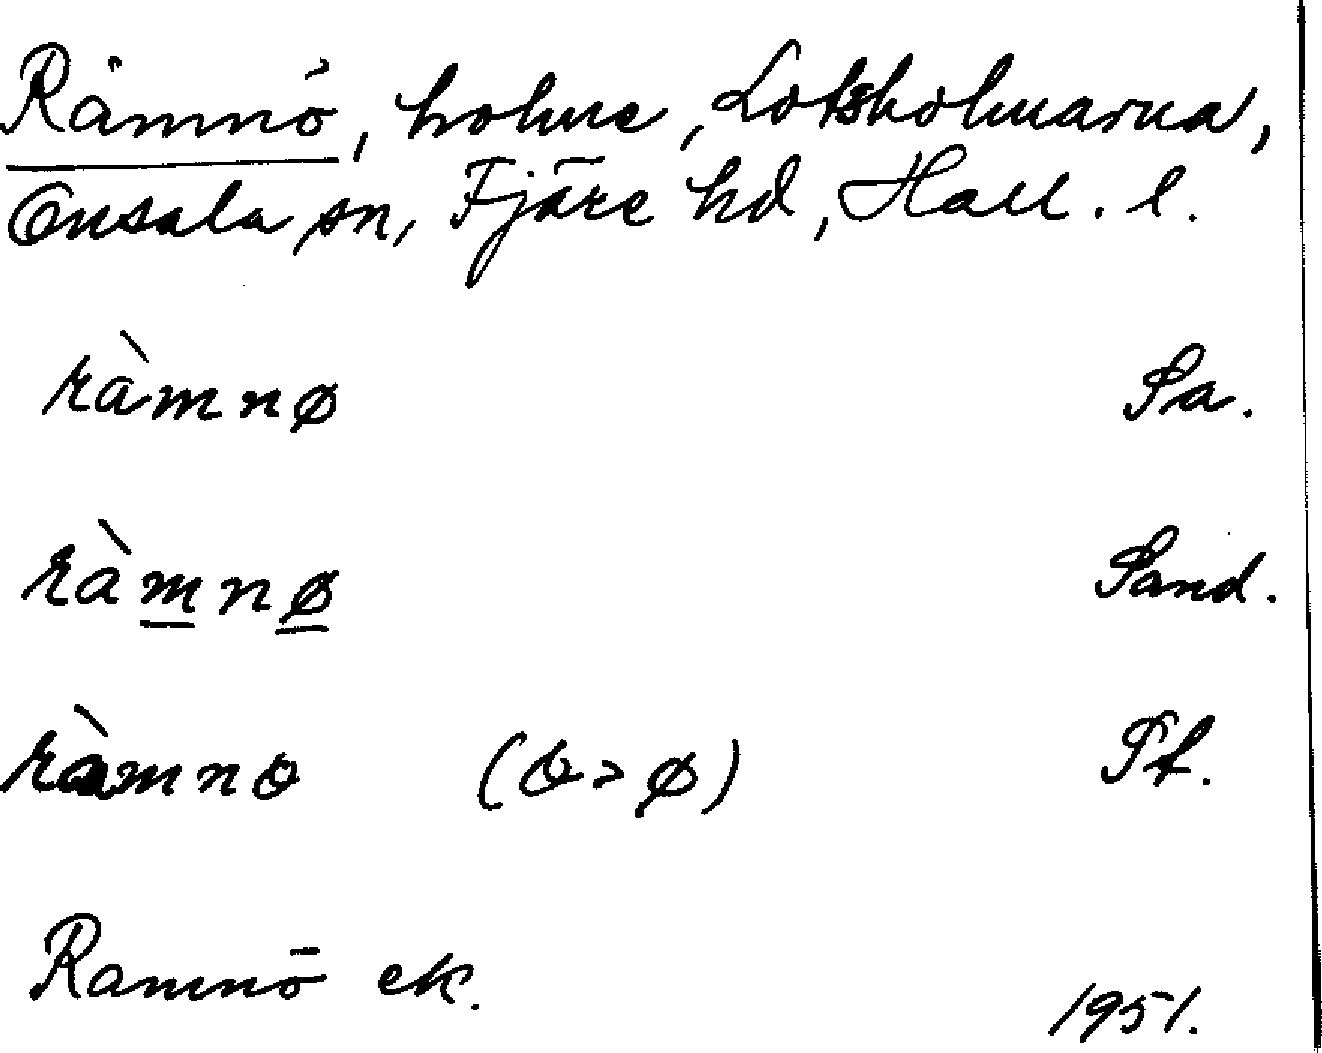 Råmnö, holme, Lotsholmarna,
Onsala sn, Fjäre hd, Hall. l.
ràmnø Sa.
ràmnø Sand.
ràmno (o > ø) Pf.
Ramnö ek.
1951.